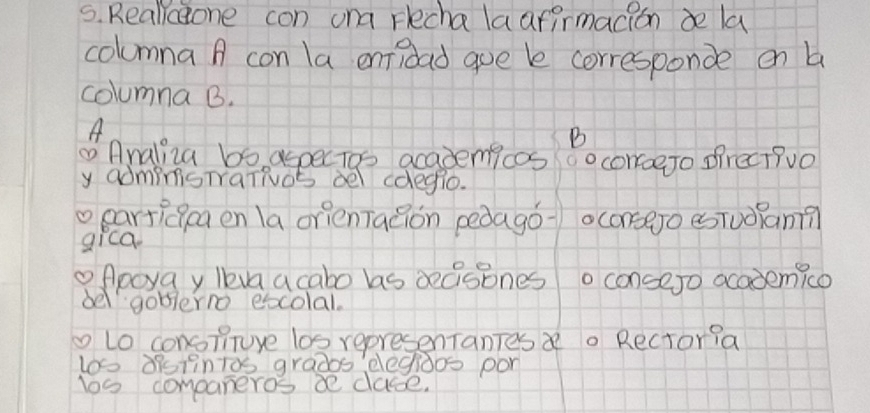 5. Realicione con una Flecha la afirmación de la
columna A con la entidad que le corresponde en la
columna B.
A
B
Analiza los aspectos academicos
y administrativos del colegio.
o consejo directivo
participa en la orientación pedagó-
gica
o consejo estudiantil
Apoya y lleva a cabo las decisiones
del gobierno escolal.
o consejo academico
Lo constituye los representantes de
los distintos grados elegidos por
los compañeros de clase.
o Rectoria